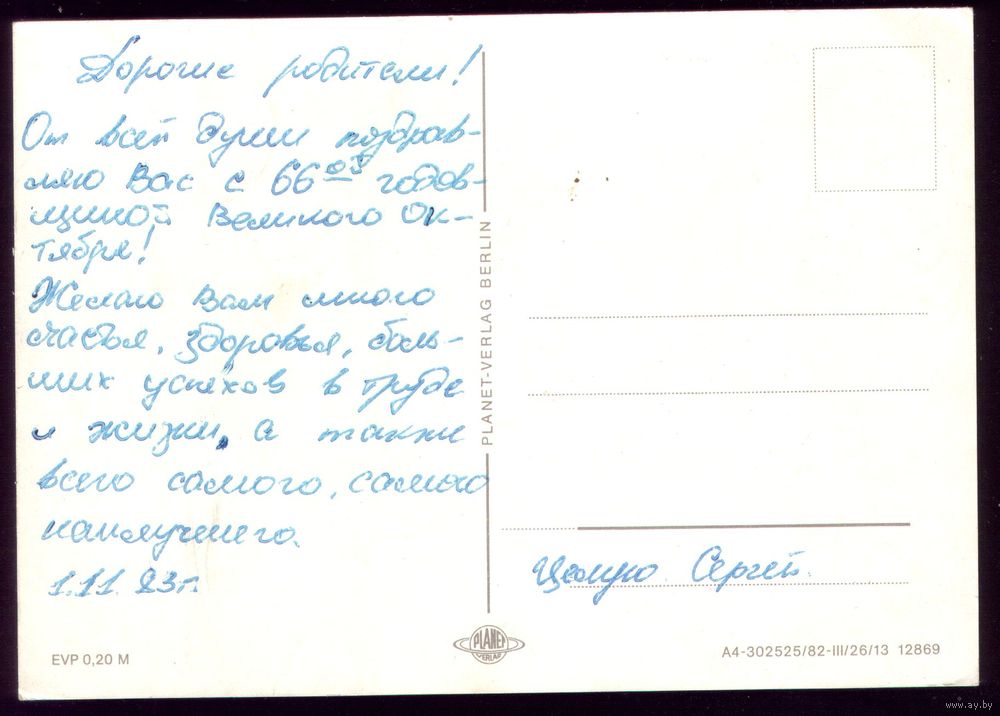 Дорогие родители!
От всей души поздрав-
ляю Вас с 66ой годов-
щиной Великого Ок-
тября!
Желаю Вам много
счастья, здоровья, боль-
ших успехов в труде
и жизни, а также
всего самого, самого
наилучшего.
1.11.83г.
PLANET-VERLAG BERLIN
Целую Сергей.
EVP 0,20 M
PLANET
VERLAG
A4-302525/82-III/26/13 12869
www.ay.by